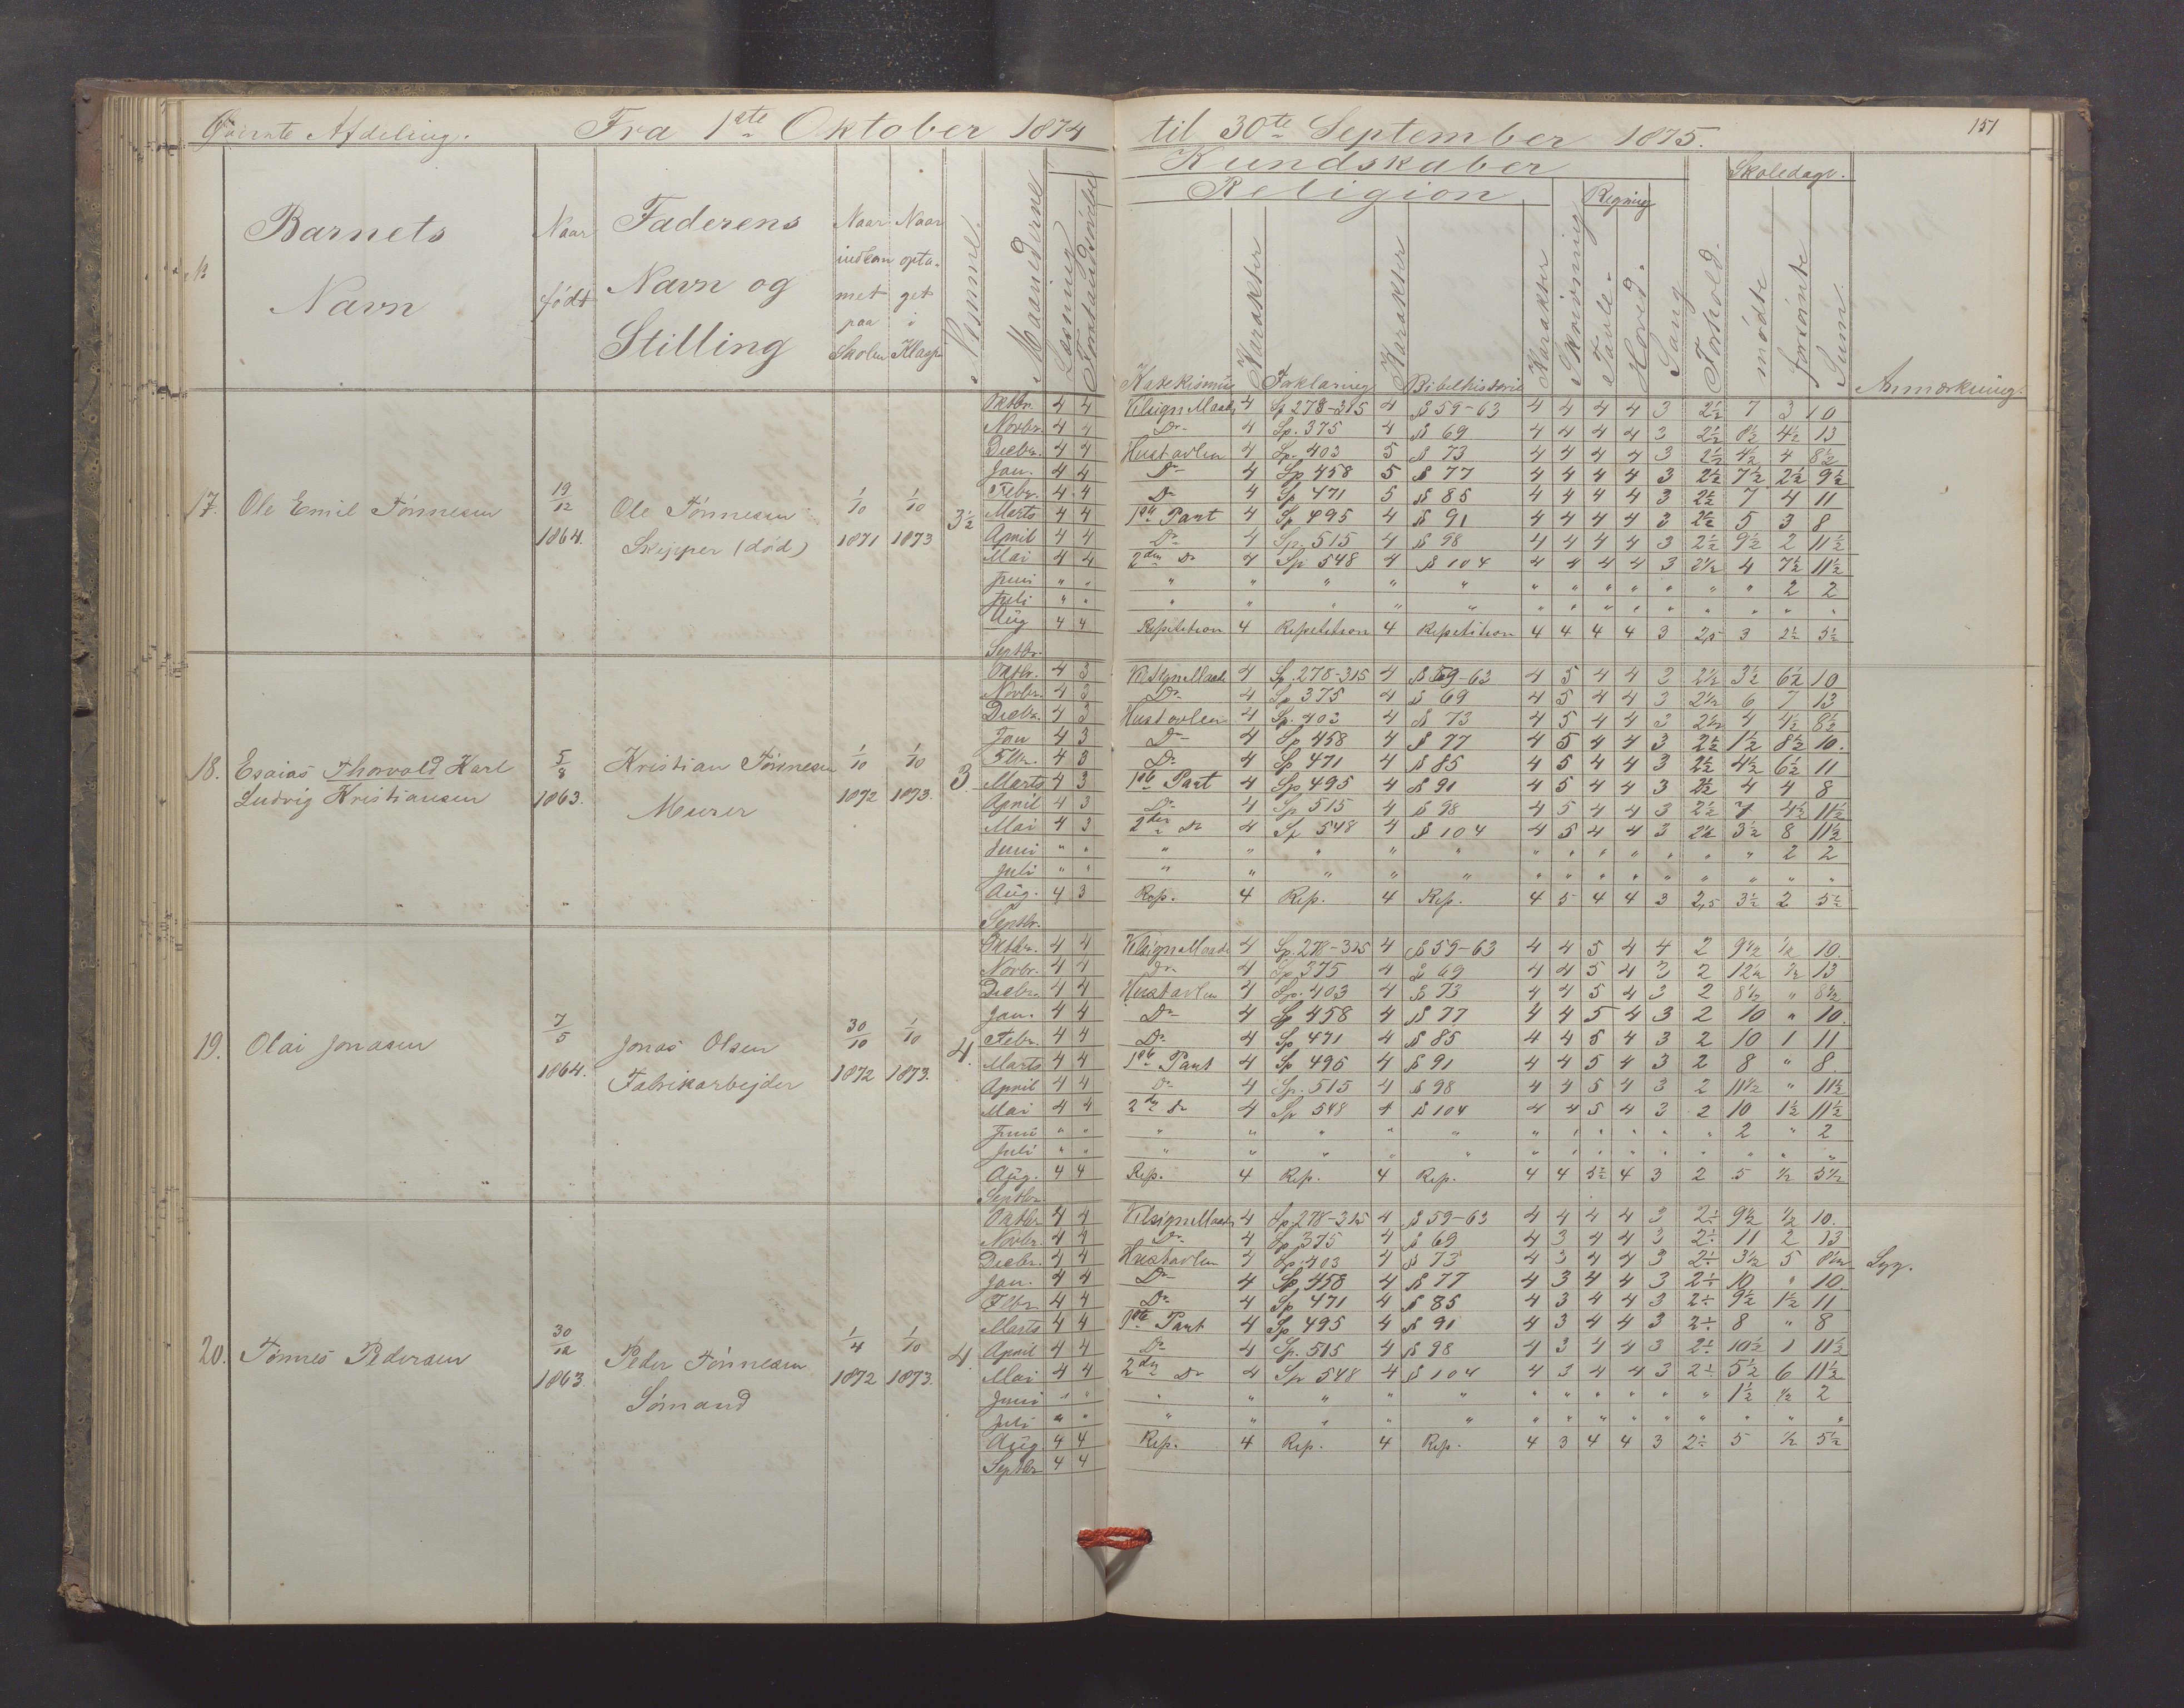 Øverste Afdeling. Fra 1ste Oktober 1874 til 30te September 1875. 151
Kundskaber
Religion Regning Skoledage.
No Barnets Navn Naar født Faderens Navn og Stilling Naar indkommet paa Skolen Naar optaget i Klasse Nemme. Maanederne Læsning Forstandsøvelse Katekismus Karakter Forklaring Karakter Bibelhistorie Karakter Skrivning Tavle- Hoved- Sang Forhold. mødte forsømte Sum. Anmærkning.
17. Ole Emil Tönnesen 19/12 1864. Ole Tönnesen Skipper (död) 1/10 1871 1/10 1873 3½
Oktbr. 4 4 Velsign. Maade 4 Sp 278-315 4 § 59-63 4 4 4 4 3 2½ 7 3 10
Novbr. 4 4 Do 4 Sp. 375 4 § 69 4 4 4 4 3 2½ 8½ 4½ 13
Decbr. 4 4 Hustavlen 4 Sp. 403 5 § 73 4 4 4 4 3 2½ 4½ 4 8½
Jan. 4 4 Do 4 Sp 458 5 § 77 4 4 4 4 3 2½ 7½ 2½ 9½
Febr. 4 4 Do 4 Sp 471 5 § 85 4 4 4 4 3 2½ 7 4 11
Marts 4 4 1ste Part 4 Sp 495 4 § 91 4 4 4 4 3 2½ 5 3 8
April 4 4 Do 4 Sp. 515 4 § 98 4 4 4 4 3 2½ 9½ 2 11½
Mai 4 4 2den Do 4 Sp 548 4 § 104 4 4 4 4 3 2½ 4 7½ 11½
Juni " " " " " " " " " " " " " " " 2 2
Juli " " " " " " " " " " " " " " " " "
Aug 4 4 Repetition 4 Repetition 4 Repetition 4 4 4 4 3 2,5 3 2½ 5½
Septbr.
18. Esaias Thorvald Karl Ludvig Kristiansen 5/8 1863. Kristian Tönnesen Murer 1/10 1872 1/10 1873. 3
Oktbr. 4 3 Velsign. Maade 4 Sp. 278-315 4 § 59-63 4 5 4 4 3 2½ 3½ 6½ 10
Novbr. 4 3 Do 4 Sp 375 4 § 69 4 5 4 4 3 2½ 6 7 13
Decbr. 4 3 Hustavlen 4 Sp. 403 4 § 73 4 5 4 4 3 2½ 4 4½ 8½
Jan 4 3 Do 4 Sp 458 4 § 77 4 5 4 4 3 2½ 1½ 8½ 10.
Febr. 4 3 Do 4 Sp 471 4 § 85 4 5 4 4 3 2½ 4½ 6½ 11
Marts 4 3 1ste Part 4 Sp 495 4 § 91 4 5 4 4 3 2½ 4 4 8
April 4 3 Do 4 Sp 515 4 § 98 4 5 4 4 3 2½ 7 4½ 11½
Mai 4 3 2den Do 4 Sp 548 4 § 104 4 5 4 4 3 2½ 3½ 8 11½
Juni " " " " " " " " " " " " " " " 2 2
Juli " " " " " " " " " " " " " " " " "
Aug. 4 3 Rep. 4 Rep. 4 Rep. 4 5 4 4 3 2,5 3½ 2 5½
Septbr.
19. Olai Jonasen 7/5 1864. Jonas Olsen Fabrikarbejder 30/10 1872 1/10 1873. 4.
Oktbr. 4 4 Velsign. Maade 4 Sp. 278-315 4 § 59-63 4 4 5 4 4 2 9½ ½ 10.
Novbr. 4 4 Do 4 Sp 375 4 § 69 4 4 5 4 3 2 12½ ½ 13
Decbr. 4 4 Hustavlen 4 Sp. 403 4 § 73 4 4 5 4 3 2 8½ " 8½
Jan. 4 4 Do 4 Sp 458 4 § 77 4 4 5 4 3 2 10 " 10.
Febr. 4 4 Do 4 Sp 471 4 § 85 4 4 5 4 3 2 10 1 11
Marts 4 4 1ste Part 4 Sp 495 4 § 91 4 4 5 4 3 2 8 " 8.
April 4 4 Do 4 Sp. 515 4 § 98 4 4 5 4 3 2 11½ " 11½
Mai 4 4 2den Do 4 Sp 548 4 § 104 4 4 5 4 3 2 10 1½ 11½
Juni " " " " " " " " " " " " " " 2 " 2
Juli " " " " " " " " " " " " " " " " "
Aug. 4 4 Rep. 4 Rep. 4 Rep. 4 4 5½ 4 3 2 5 ½ 5½
Septbr.
20. Tönnes Pedersen 30/12 1863. Peder Tönnesen Sömand 1/4 1872 1/10 1873. 4.
Oktbr 4 4 Velsign. Maade 4 Sp 278-315 4 § 59-63 4 4 4 4 3 2÷ 9½ ½ 10.
Novbr. 4 4 Do 4 Sp 375 4 § 69 4 3 4 4 3 2÷ 11 2 13
Decbr. 4 4 Hustavlen 4 Sp. 403 4 § 73 4 3 4 4 3 2÷ 3½ 5 8½ Syg.
Jan. 4 4 Do 4 Sp 458 4 § 77 4 3 4 4 3 2÷ 10 " 10.
Febr 4 4 Do 4 Sp 471 4 § 85 4 3 4 4 3 2÷ 9½ 1½ 11
Marts 4 4 1ste Part 4 Sp 495 4 § 91 4 3 4 4 3 2÷ 8 " 8
April 4 4 Do 4 Sp. 515 4 § 98 4 3 4 4 3 2÷ 10½ 1 11½
Mai 4 4 2den Do 4 Sp 548 4 § 104 4 3 4 4 3 2÷ 5½ 6 11½
Juni " " " " " " " " " " " " " " 1½ ½ 2
Juli " " " " " " " " " " " " " " " " "
Aug. 4 4 Rep. 4 Rep. 4 Rep. 4 3 4 4 3 2÷ 5 ½ 5½
Septbr 4 4